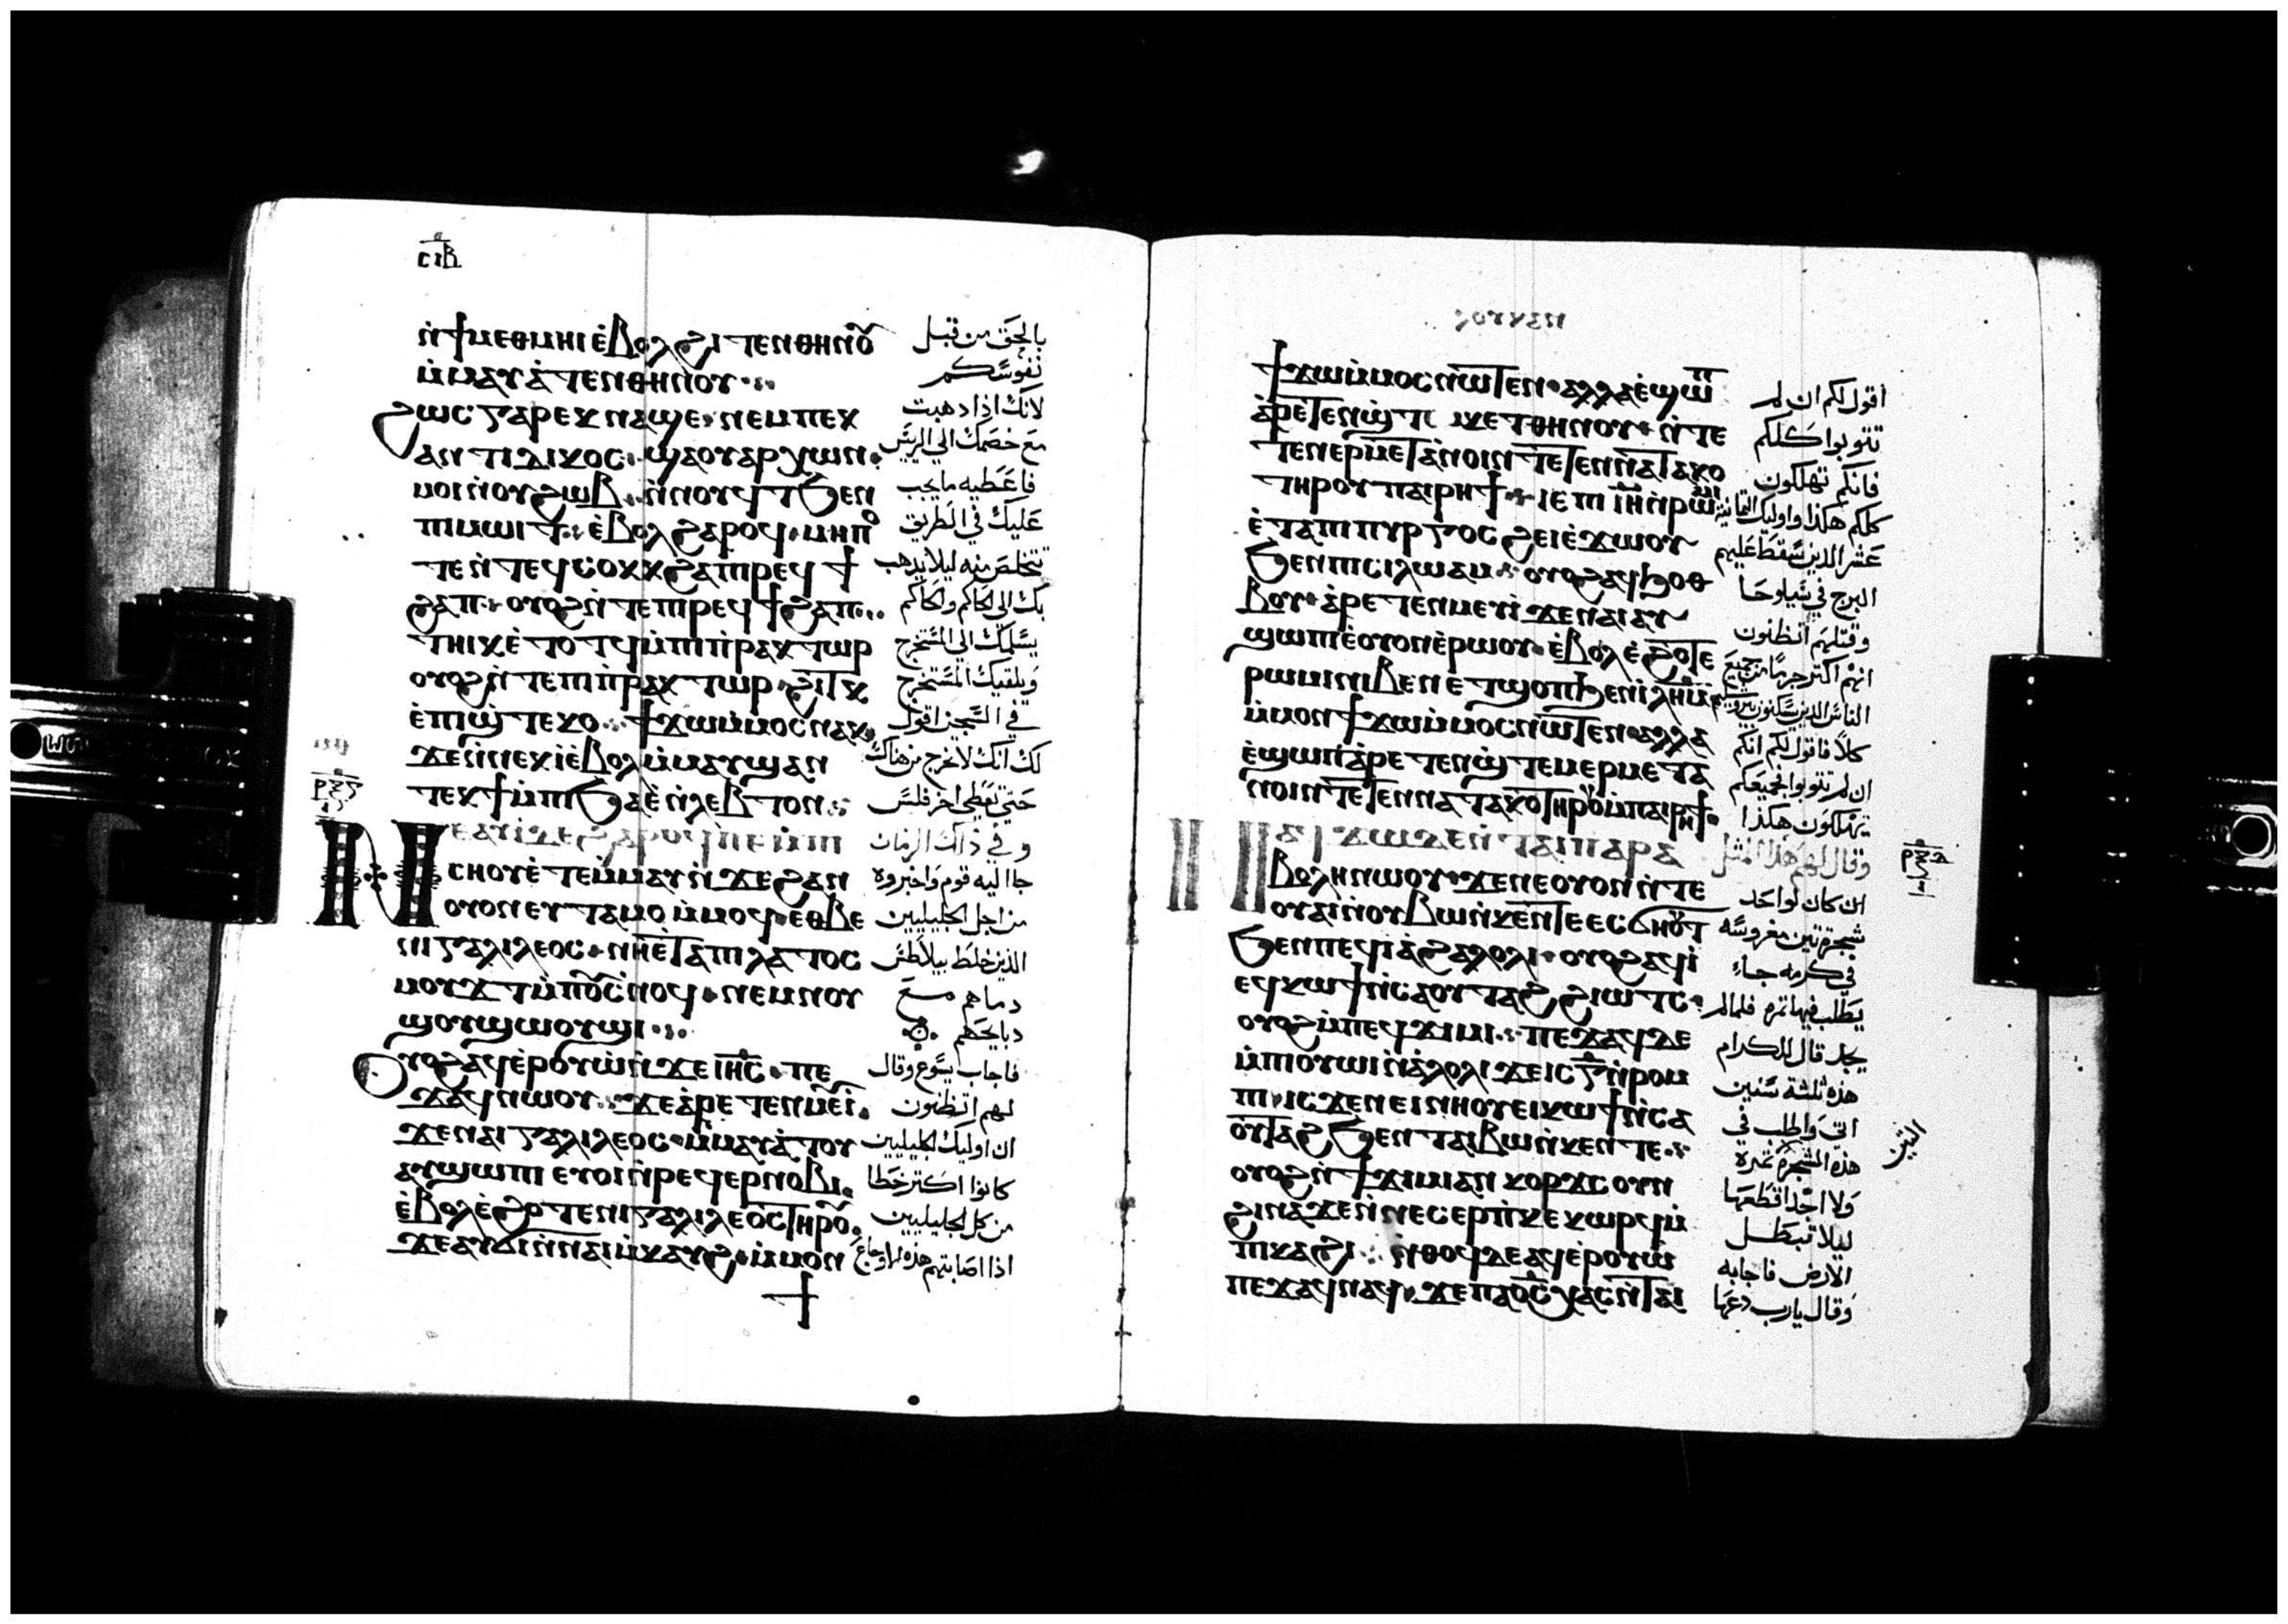 ⲥⲓⲃ
ⲛ̀ϯⲙⲉⲑⲙⲏⲓ ⲉ̀ⲃⲟⲗ ϩⲓⲧⲉⲛ ⲑⲏⲛⲟⲩ
ⲙ̀ⲙⲁⲩⲁ̀ⲧⲉⲛ ⲑⲏⲛⲟⲩ
ϩⲱⲥ ⲅⲁⲣ ⲉⲕⲛⲁϣⲉ ⲛⲉⲙ ⲡⲉⲕ
ⲁⲛⲧⲓⲇⲓⲕⲟⲥ ϣⲁ ⲟⲩⲁⲣⲭⲱⲛ
ⲙⲟⲓ ⲛ̀ⲟⲩϩⲱⲃ ⲛ̀ⲛⲟⲩϥⲧ ϧⲉⲛ
ⲡⲓⲙⲱⲓⲧ ⲉ̀ⲃⲟⲗ ϩⲁⲣⲟϥ ⲙⲏⲡⲟ
ⲧⲉ ⲛ̀ⲧⲉϥⲥⲟⲕⲕ ϩⲁ ⲡⲓⲣⲉϥϯ
ϩⲁⲡ ⲟⲩⲟϩ ⲛ̀ⲧⲉ ⲡⲓⲣⲉϥϯϩⲁⲡ
ⲧⲏⲓⲕ ⲉ̀ⲧⲟⲧϥ ⲙ̀ⲡⲓⲡ̀ⲣⲁⲕⲧⲱⲣ
ⲟⲩⲟϩ ⲛ̀ⲧⲉ ⲡⲓⲡ̀ⲣⲁⲕⲧⲱⲣ ϩⲓⲧⲕ
ⲉ̀ⲡⲓϣ̀ⲧⲉⲕⲟ ϯϫⲱ ⲙ̀ⲙⲟⲥ ⲛⲁⲕ
ϫⲉ ⲛ̀ⲛⲉⲕⲓ̀ ⲉ̀ⲃⲟⲗ ⲙ̀ⲙⲁⲩ ϣⲁⲛ
ⲧⲉⲕϯ ⲙ̀ⲡⲓϧⲁⲉ̀ ⲛ̀ⲗⲉⲃⲧⲟⲛ
ⲛⲉⲁⲩⲓ̀ ⲇⲉ ϩⲁⲣⲟϥ ⲡⲉ ⲙ̀ⲡⲓ
ⲥⲛⲟⲩ ⲉ̀ⲧⲉⲙ̀ⲙⲁⲩ ⲛ̀ϫⲉ ϩⲁⲛ
ⲟⲩⲟⲛ ⲉⲩⲧⲁⲙⲟ ⲙ̀ⲙⲟϥ ⲉⲑⲃⲉ
ⲛⲓⲅⲁⲗⲓⲗⲉⲟⲥ ⲛⲏ ⲉ̀ⲧⲁ ⲡⲓⲗⲁⲧⲟⲥ
ⲙⲟⲩϫⲧ ⲙ̀ⲡⲟⲩⲥⲛⲟϥ ⲛⲉⲙ ⲛⲟⲩ
ϣⲟⲩϣⲱⲟⲩϣⲓ
ⲟⲩⲟϩ ⲁϥⲉⲣⲟⲩⲱ̀ ⲛ̀ϫⲉ ⲓⲏⲥ ⲡⲉ
ϫⲁϥ ⲛⲱⲟⲩ ϫⲉ ⲁ̀ⲣⲉⲧⲉⲛⲙⲉⲩⲓ̀
ϫⲉ ⲛⲁⲓⲅⲁⲗⲓⲗⲉⲟⲥ ⲙ̀ⲙⲁⲩⲁ̀ⲧⲟⲩ
ⲁⲩϣⲱⲡⲓ ⲉⲩⲟⲓ ⲛ̀ⲣⲉϥⲉⲣⲛⲟⲃⲓ
ⲉ̀ⲃⲟⲗ ⲉ̀ϩⲟⲧⲉ ⲛⲓⲅⲁⲗⲓⲗⲉⲟⲥ ⲧⲏⲣⲟⲩ
ϫⲉ ⲁⲩϭⲓ ⲛ̀ⲛⲁⲓⲙ̀ⲕⲁⲩϩ ⲙ̀ⲙⲟⲛ
بالحق من قبل
نفوسكم
لانك اذا ذهبت
مع خصمك الي الريس
فاعطيه ما يجب
عليك في الطريق
تتخلص منه ليلا يذهب
بك الى الحاكم والحاكم
يسلمك الي المستخرج
ويلقيك المستخرج
في السجن اقول
لك انك لا تخرج من هناك
حتي تعطي اخر فلس
وفي ذلك الزمان
جا اليه قوم واخبروه
من اجل الجليليين
الذين خلط بيلاطس
دماهم مع
دبايحهم
فاجاب يسوع وقال
لهم اتظنون
ان اوليك الجليليين
كانوا اكتر خطا
من كل الجليليين
اذا اصابتهم هذه الاوجاع
ⲣⲝⲋ
ϯϫⲱ ⲙ̀ⲙⲟⲥ ⲛⲱⲧⲉⲛ ⲁⲗⲗⲁ ⲉ̀ϣⲱⲡ
ⲁ̀ⲣⲉⲧⲉⲛϣ̀ⲧⲉⲙⲕⲉⲧ ⲑⲏⲛⲟⲩ ⲛ̀ⲧⲉ
ⲧⲉⲛⲉⲣⲙⲉⲧⲁ̀ⲛⲟⲓⲛ ⲧⲉⲧⲉⲛⲛⲁⲧⲁⲕⲟ
ⲧⲏⲣⲟⲩ ⲡⲁⲓⲣⲏϯ ⲓⲉ ⲡⲓⲓ̅ⲏ̅ ⲛ̀ⲣⲱⲙⲓ
ⲉ̀ⲧⲁ ⲡⲓⲡⲩⲣⲅⲟⲥ ϩⲉⲓ ⲉ̀ϫⲱⲟⲩ
ϧⲉⲛ ⲡⲓⲥⲓⲗⲱⲁⲙ ⲟⲩⲟϩ ⲁϥϧⲟⲑ
ⲃⲟⲩ ⲁ̀ⲣⲉⲧⲉⲛⲙⲉⲩⲓ̀ ϫⲉ ⲛⲁⲓ ⲁⲩ
ϣⲱⲡⲓ ⲉ̀ⲟⲩⲟⲛ ⲉ̀ⲣⲱⲟⲩ ⲉ̀ⲃⲟⲗ ⲉ̀ϩⲟⲧⲉ
ⲣⲱⲙⲓ ⲛⲓⲃⲉⲛ ⲉⲧϣⲟⲡ ϧⲉⲛ ⲓⲗⲏⲙ
ⲙ̀ⲙⲟⲛ ϯϫⲱ ⲙ̀ⲙⲟⲥ ⲛⲱⲧⲉⲛ ⲁⲗⲗⲁ
ⲉ̀ϣⲱⲡ ⲁ̀ⲣⲉⲧⲉⲛϣ̀ⲧⲉⲙⲉⲣⲙⲉⲧⲁ
ⲛⲟⲓⲛ ⲧⲉⲧⲉⲛⲛⲁⲧⲁⲕⲟ ⲧⲏⲣⲟⲩ ⲙ̀ⲡⲁⲓⲣⲏϯ
ⲛⲁϥϫⲱ ⲇⲉ ⲛ̀ⲧⲁⲓⲡⲁⲣⲁ
ⲃⲟⲗⲏ ⲛⲱⲟⲩ ϫⲉ ⲛⲉ ⲟⲩⲟⲛ ⲛ̀ⲧⲉ
ⲟⲩⲁⲓ ⲛ̀ⲟⲩⲃⲱ ⲛ̀ⲕⲉⲛⲧⲉ ⲉⲥϭⲛⲟⲩⲧ
ϧⲉⲛ ⲡⲉϥⲓⲁ̀ϩⲁⲗⲟⲗⲓ ⲟⲩⲟϩ ⲁϥⲓ̀
ⲉϥⲕⲱϯ ⲛ̀ⲥⲁ ⲟⲩⲧⲁϩ ϩⲓⲱⲧⲥ
ⲟⲩⲟϩ ⲙ̀ⲡⲉϥϫⲓⲙⲓ ⲡⲉϫⲁϥ ⲇⲉ
ⲙ̀ⲡⲓⲟⲩⲱⲓ ⲛ̀ⲁ̀ⲗⲟⲗⲓ ϫⲉ ⲓⲥ ⲅ̅ ⲛ̀ⲣⲟⲙ
ⲡⲓ ⲓⲥϫⲉⲛ ⲉⲓⲛⲏⲟⲩ ⲉⲓⲕⲱϯ ⲛ̀ⲥⲁ
ⲟⲩⲧⲁϩ ϧⲉⲛ ⲧⲁⲓⲃⲱ ⲛ̀ⲕⲉⲛⲧⲉ
ⲟⲩⲟϩ ⲛ̀ϯϫⲓⲙⲓ ⲁⲛ ⲕⲟⲣϫⲥ ⲟⲩⲛ
ϩⲓⲛⲁ ϫⲉ ⲛ̀ⲛⲉⲥⲉⲣⲡ̀ⲕⲉⲕⲱⲣϥ ⲙ̀
ⲡⲓⲕⲁϩⲓ ⲛ̀ⲑⲟϥ ⲇⲉ ⲁϥⲉ̀ⲣⲟⲩⲱ̀
ⲡⲉϫⲁϥ ⲛⲁϥ ϫⲉ ⲡⲁⲟ̅ⲥ̅ ⲭⲁⲥ ⲛ̀ⲧⲁⲓ
اقول لكم ان لم
تتوبوا كلكم
فانكم تهلكون
كلكم هكذا واوليك التمانية
عشر الذين سقط عليهم
البرج في شيلوحا
وقتلهم اتظنون
انهم اكتر جرما من جميع
الناس الذين يسكنون بيروشليم
كلا فاقول لكم انكم
ان لم تتوبوا جميعكم
تهلكون هكذا
وقال لهم هذا المثل
ان كان لواحد
شجرة تين مغروسه
في كرمه جاء
يطلب فيها تمره فلما لم
يجد قال للكرام
هذه ثلثة سنين
اتي واطلب في
هذه الشجرة تمرة
ولا اجد اقطعها
ليلا تبطل
الارض فاجابه
وقال يا رب دعها
التين